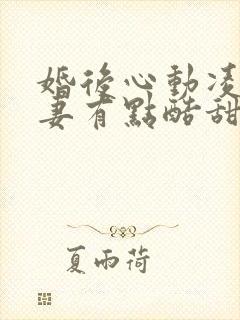 婚後心動凌
妻有點酷甜
夏雨荷